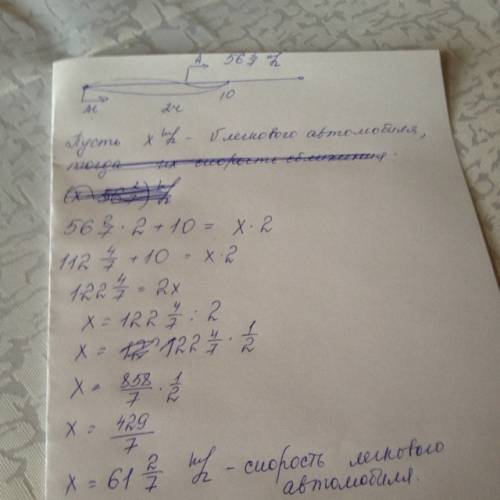 А 56 2/7 км/ч
2ч 10
Пусть x км/ч - v легкового автомобиля,
тогда их скорость сближения.
56 2/7 · 2 + 10 = x · 2
112 4/7 + 10 = x · 2
122 4/7 = 2x
x = 122 4/7 : 2
x = 122 4/7 · 1/2
x = 858/7 · 1/2
x = 429/7
x = 61 2/7 км/ч - скорость легкового
автомобиля.